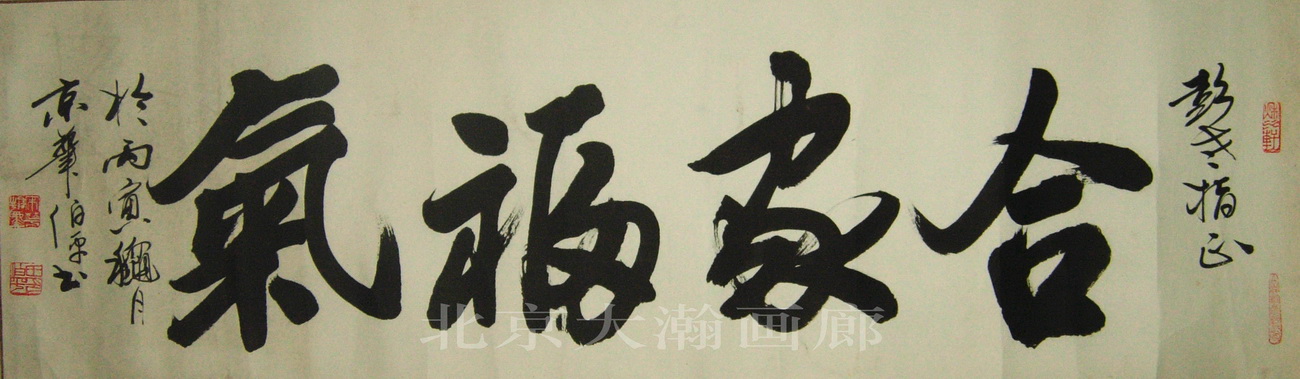 彭老指正
合家福氣
於丙寅龝月
京華伯平书
北京大瀚画廊